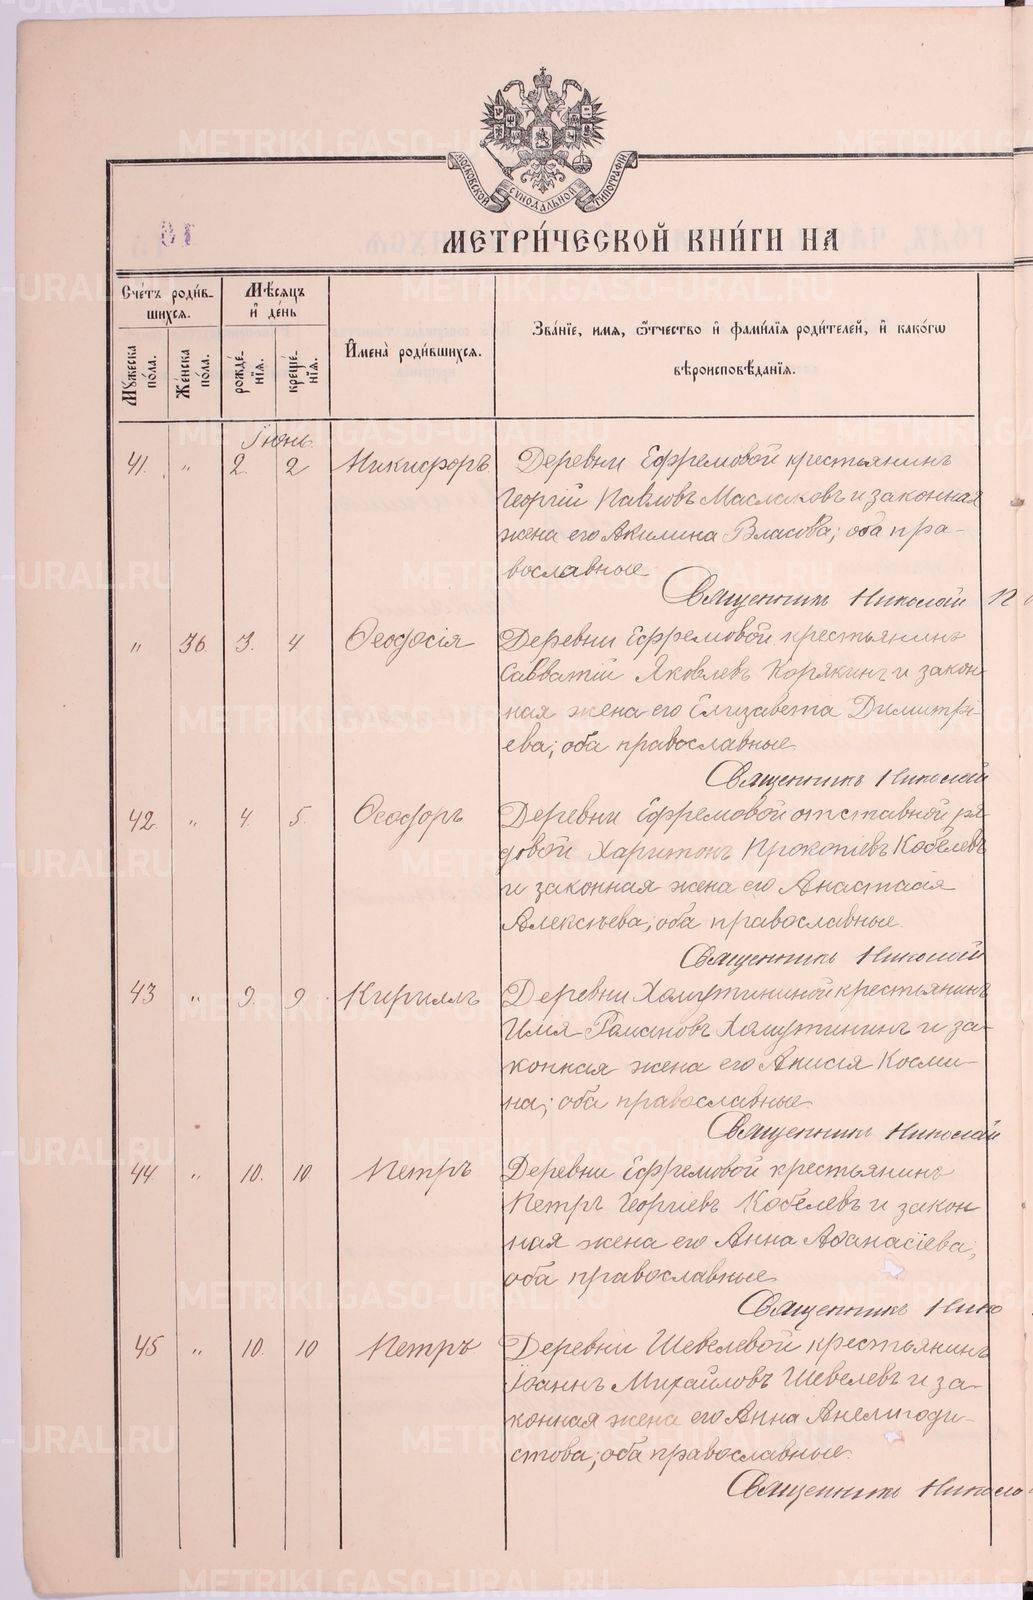 МОСКОВСКОЙ СѴНОДАЛЬНОЙ ТИПОГРАФІИ
МЕТРИ́ЧЕСКОЙ КНИ́ГИ НА
Сче́тъ роди́в-
шихся.
Мѣ́сяцъ
и҆ де́нь
Мꙋ́жеска
по́ла.
Же́нска
по́ла.
рожде́-
нїя.
креще́-
нїя.
И҆мена̀ роди́вшихся.
Зва́нїе, имя, ѻ҆́тчество и҆ фами́лїя роди́телей, и҆ како́гѡ
вѣроисповѣ́данїя.
Іюнь.
41. " 2. 2 Никифоръ Деревни Ефремовой крестьянинъ
Георгій Павловъ Маслаковъ и законная
жена его Акилина Власова; оба пра-
вославные
Священникъ Николай
" 36. 3. 4 Ѳеодосія Деревни Ефремовой крестьянинъ
Савватій Яковлевъ Корякинъ и закон-
ная жена его Елизавета Димитрі-
ева; оба православные.
Священникъ Николай
42. " 4. 5. Ѳеодоръ Деревни Ефремовой отставной ря-
довой Харитонъ Прокопіевъ Кобелевъ
и законная жена его Анастасія
Алексѣева; оба православные.
Священникъ Николай
43 " 9. 9. Кириллъ Деревни Хамутининой крестьянинъ
Илія Романовъ Хамутининъ и за-
конная жена его Анисія Косми-
на; оба православные
Священникъ Николай
44 " 10. 10. Петръ Деревни Ефремовой крестьянинъ
Петръ Георгіевъ Кобелевъ и закон-
ная жена его Анна Аѳанасіева;
оба православные
Священникъ Нико
45 " 10. 10 Петръ Деревни Шевелевой крестьянинъ
Іоаннъ Михайловъ Шевелевъ и за-
конная жена его Анна
стова; оба православные.
Священникъ Никола
METRIKI.GASO-URAL.RU